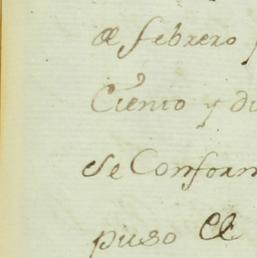 de febrero
Ciento y di
se Conform
puso el